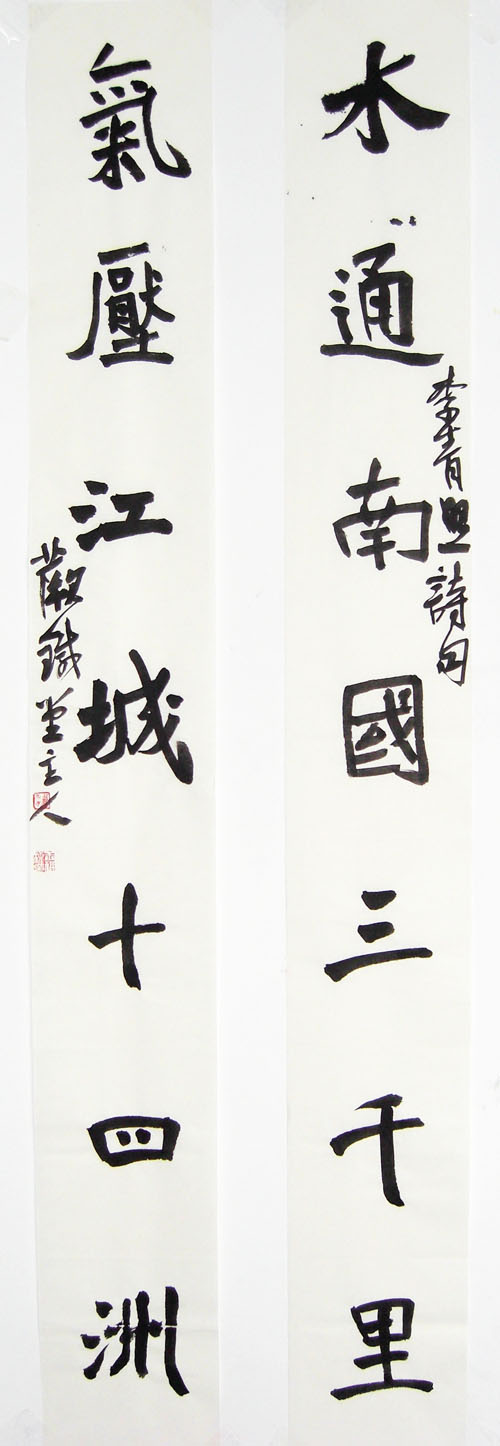 水通南國三千里
李清照詩句
氣壓江城十四洲
嚴鐵堂主人